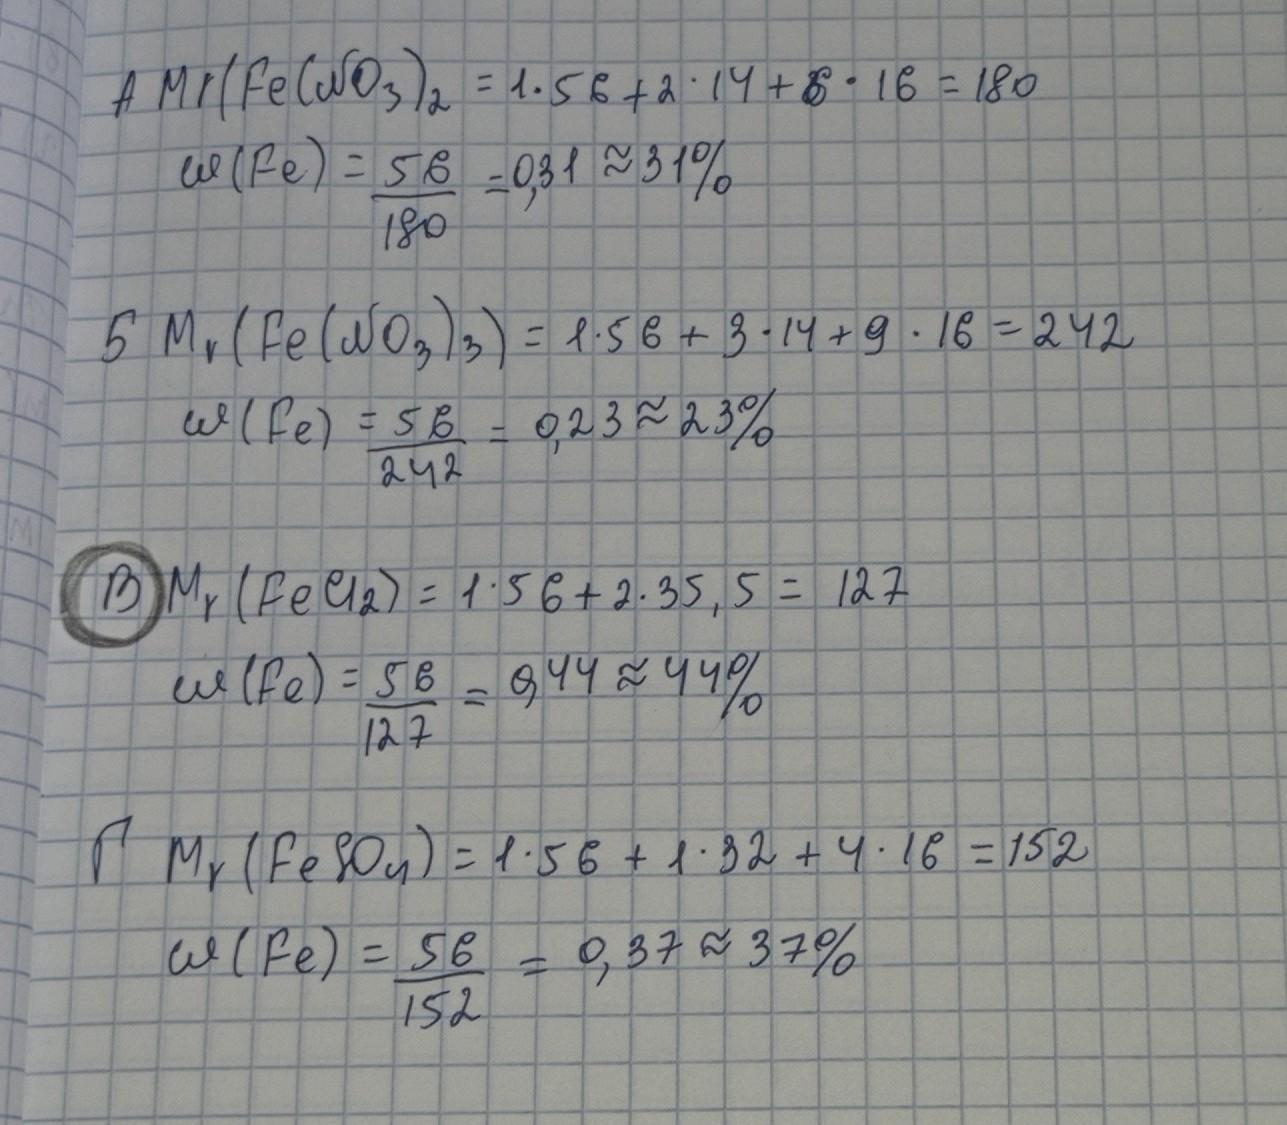 А Mr(Fe(NO₃)₂ = 1·56+2·14+6·16=180
w(Fe) = 56/180 =0,31 ≈31%
Б Mr(Fe(NO₃)₃) = 1·56+3·14+9·16=242
w(Fe) = 56/242 = 0,23≈23%
В Mr(FeCl₂) = 1·56+2·35,5 = 127
w(Fe) = 56/127 = 0,44≈44%
Г Mr(FeSO₄) = 1·56+1·32+4·16=152
w(Fe) = 56/152 = 0,37≈37%